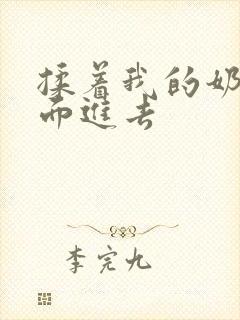 揉着我的奶
而进去
李完九